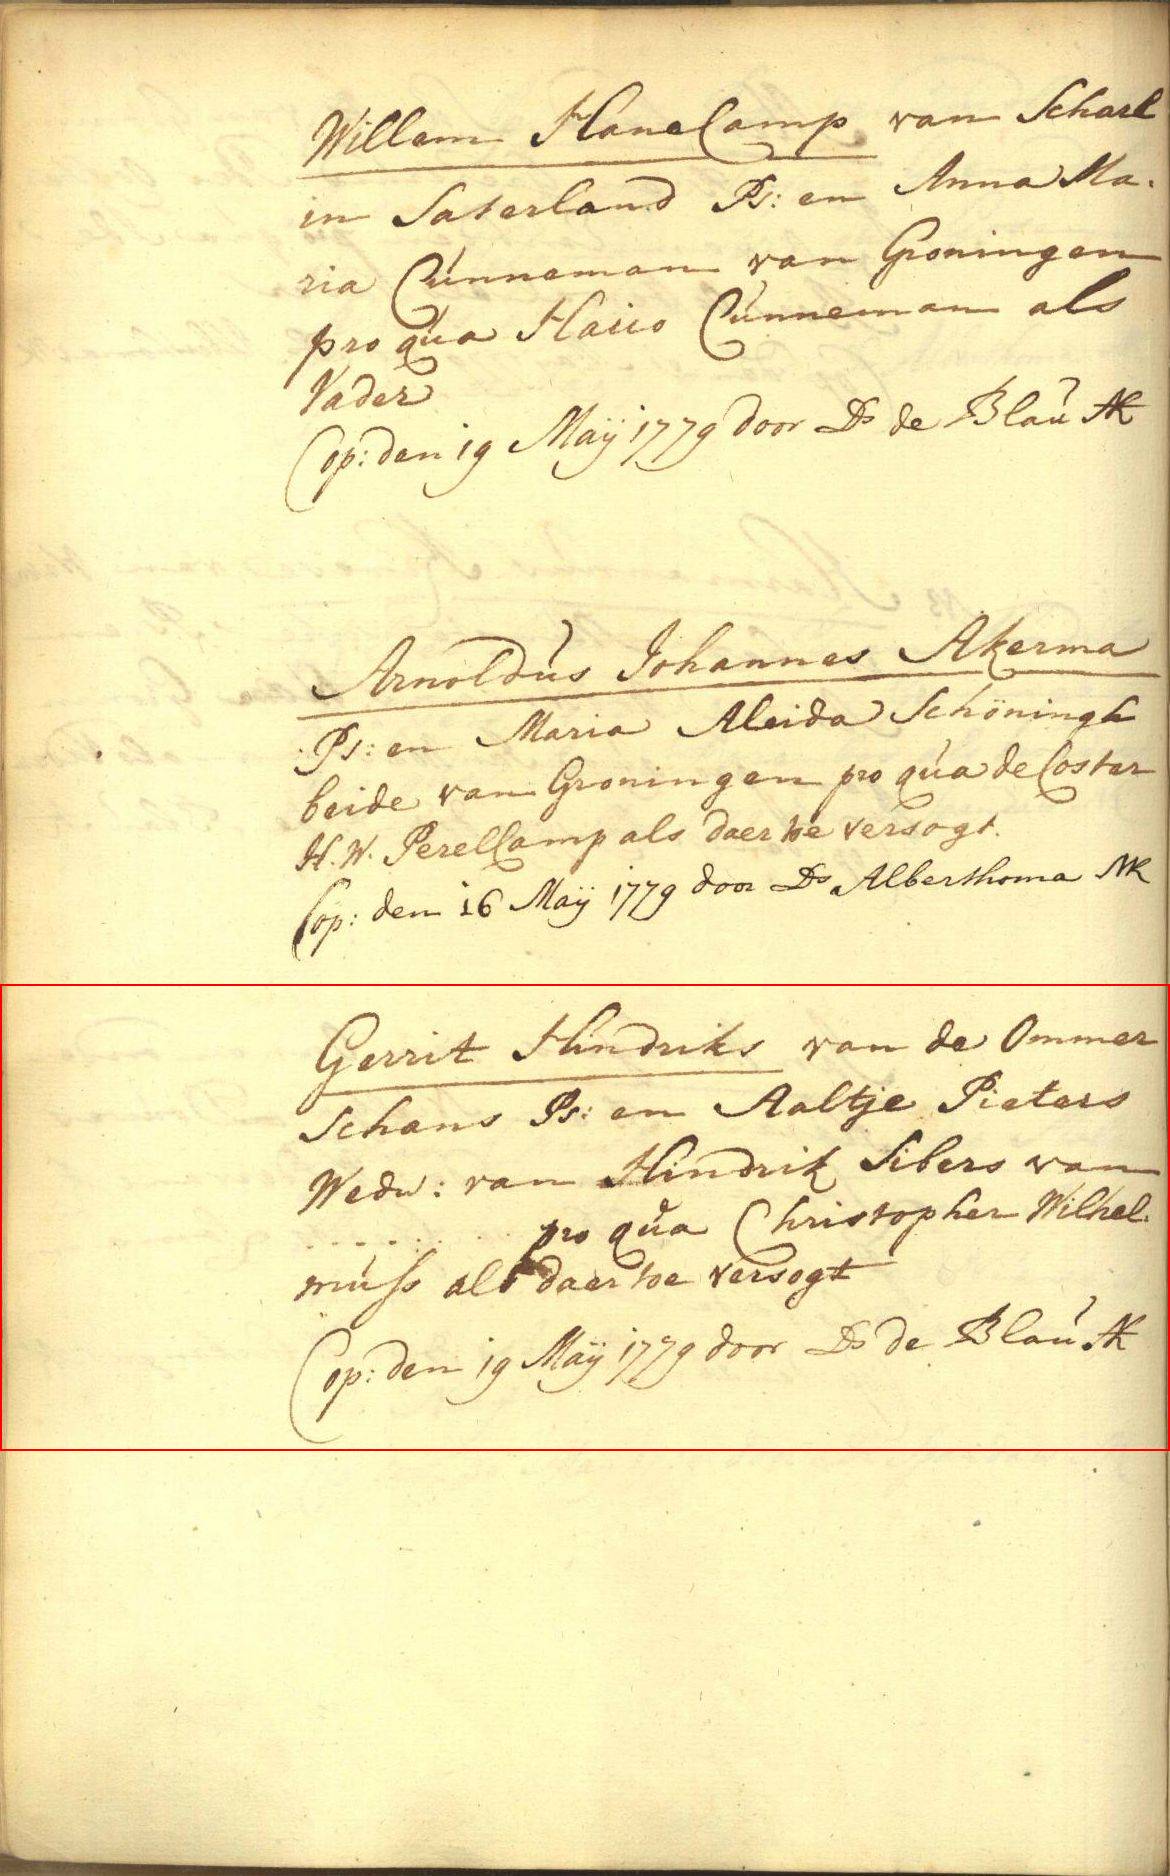 Willem HaneCamp van Scharl
in Saterland Ps: en Anna Ma.
ria Cúnneman van Groningen
pro qúa Haiio Cúnneman als
Vader
Cop: den 19 Maÿ 1779 door Ds de Blaú AK
Arnoldús Johannes Akerma
Ps: en Maria Aleida Schöningh
beide van Groningen pro qúa de Coster
H. W. PerelCamp als daer toe versogt.
Cop: den 16 Maÿ 1779 door Ds Alberthoma NK
Gerrit Hindriks van de Ommer
Schans Ps: en Aaltje Pieters
Wedw: van Hindrik Sibers van
. . . . . . . . pro qúa Christopher Wilhel.
múss als daer toe versogt
Cop: den 19 Maÿ 1779 door Ds de Blaú AK